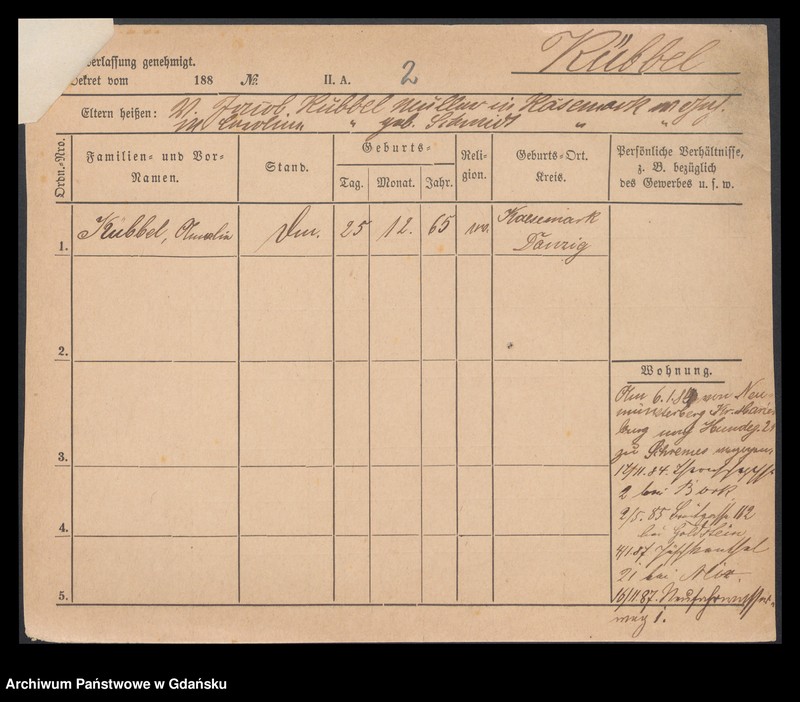 erlassung genehmigt.
Dekret vom 188 No. II. A. 2
Kübbel
Eltern heißen: V. Jacob Kübbel Müller in Käsemark
M. Caroline " geb. Schmidt " "
Ordn.-Nro.
Familien- und Vor-
Namen.
Stand.
Geburts-
Tag. Monat. Jahr.
Reli-
gion.
Geburts-Ort.
Kreis.
Persönliche Verhältnisse,
z. B. bezüglich
des Gewerbes u. s. w.
1. Kübbel, Amalie 25 12. 65 Kaesemark
Danzig
2.
3.
4.
5.
Wohnung.
Am 6.1. von Neu-
münsterberg Kr. Marien
burg nach Hundeg.
zu
17/11. 84.
2 bei Bork
2/5. 85 Breitgasse 112
bei Goldstein
4/1 87 Jäschkenthal
21 bei
16/11 87. Neufahrwasser
weg 1.
Archiwum Państwowe w Gdańsku